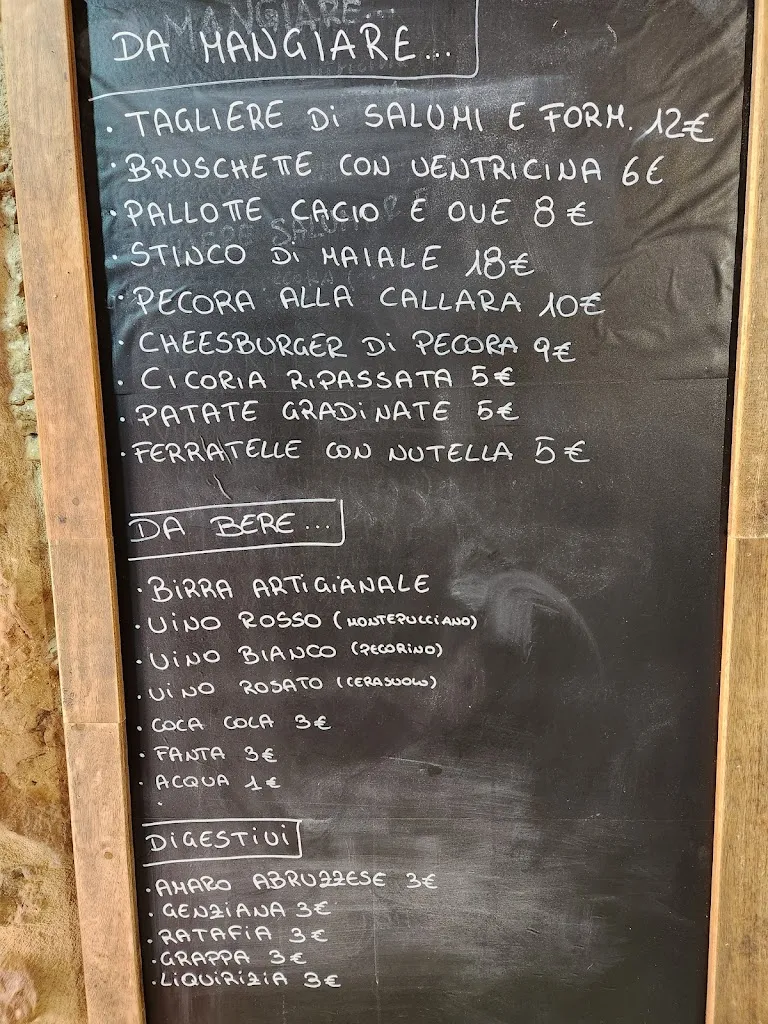 DA MANGIARE...
· TAGLIERE Di SALUMI E FORM. 12€
· BRUSCHETTE CON VENTRICINA 6€
· PALLOTTE CACIO E OVE 8€
· STINCO Di MAIALE 18€
· PECORA ALLA CALLARA 10€
· CHEESBURGER Di PECORA 9€
· CICORIA RIPASSATA 5€
· PATATE GRADiNATE 5€
· FERRATELLE CON NUTELLA 5€
DA BERE...
· BIRRA ARTiGiANALE
· ViNO ROSSO (MONTEPULCIANO)
· ViNO BIANCO (PECORINO)
· ViNO ROSATO (CERASUOLO)
· COCA COLA 3€
· FANTA 3€
· ACQUA 1€
DiGESTIVI
· AMARO ABRUZZESE 3€
· GENZIANA 3€
· RATAFiA 3€
· GRAPPA 3€
· LiQUIRIZIA 3€